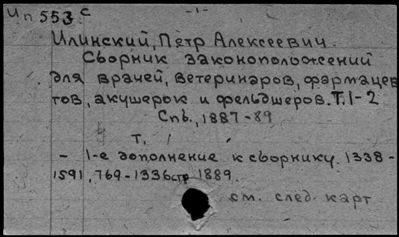 Ип 553 с
- 1 -
Илинский, Петр Алексеевич.
Сборник законоположений
для врачей, ветеринаров, фармацев
тов, акушерок и фельдшеров. Т. 1-2
Спб., 1887-89
Т. 1
- 1-е дополнение к сборнику. 1338-
1591, 769-1336 стр 1889.
см. след. карт